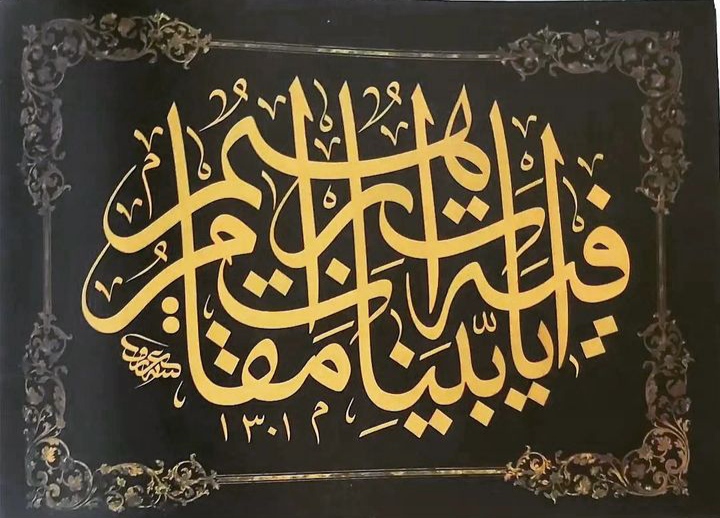 فيه آيات بينات مقام إبراهيم
١٣٠١ م